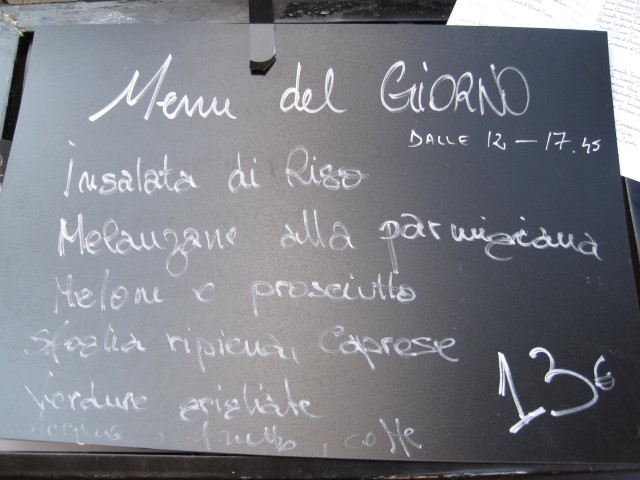 Menu del GiORNO
DALLE 12 – 17.45
Insalata di Riso
Melanzane alla parmigiana
Melone e prosciutto
Sfoglia ripiena, Caprese
Verdure grigliate
13€
Acqua, frutta, caffe